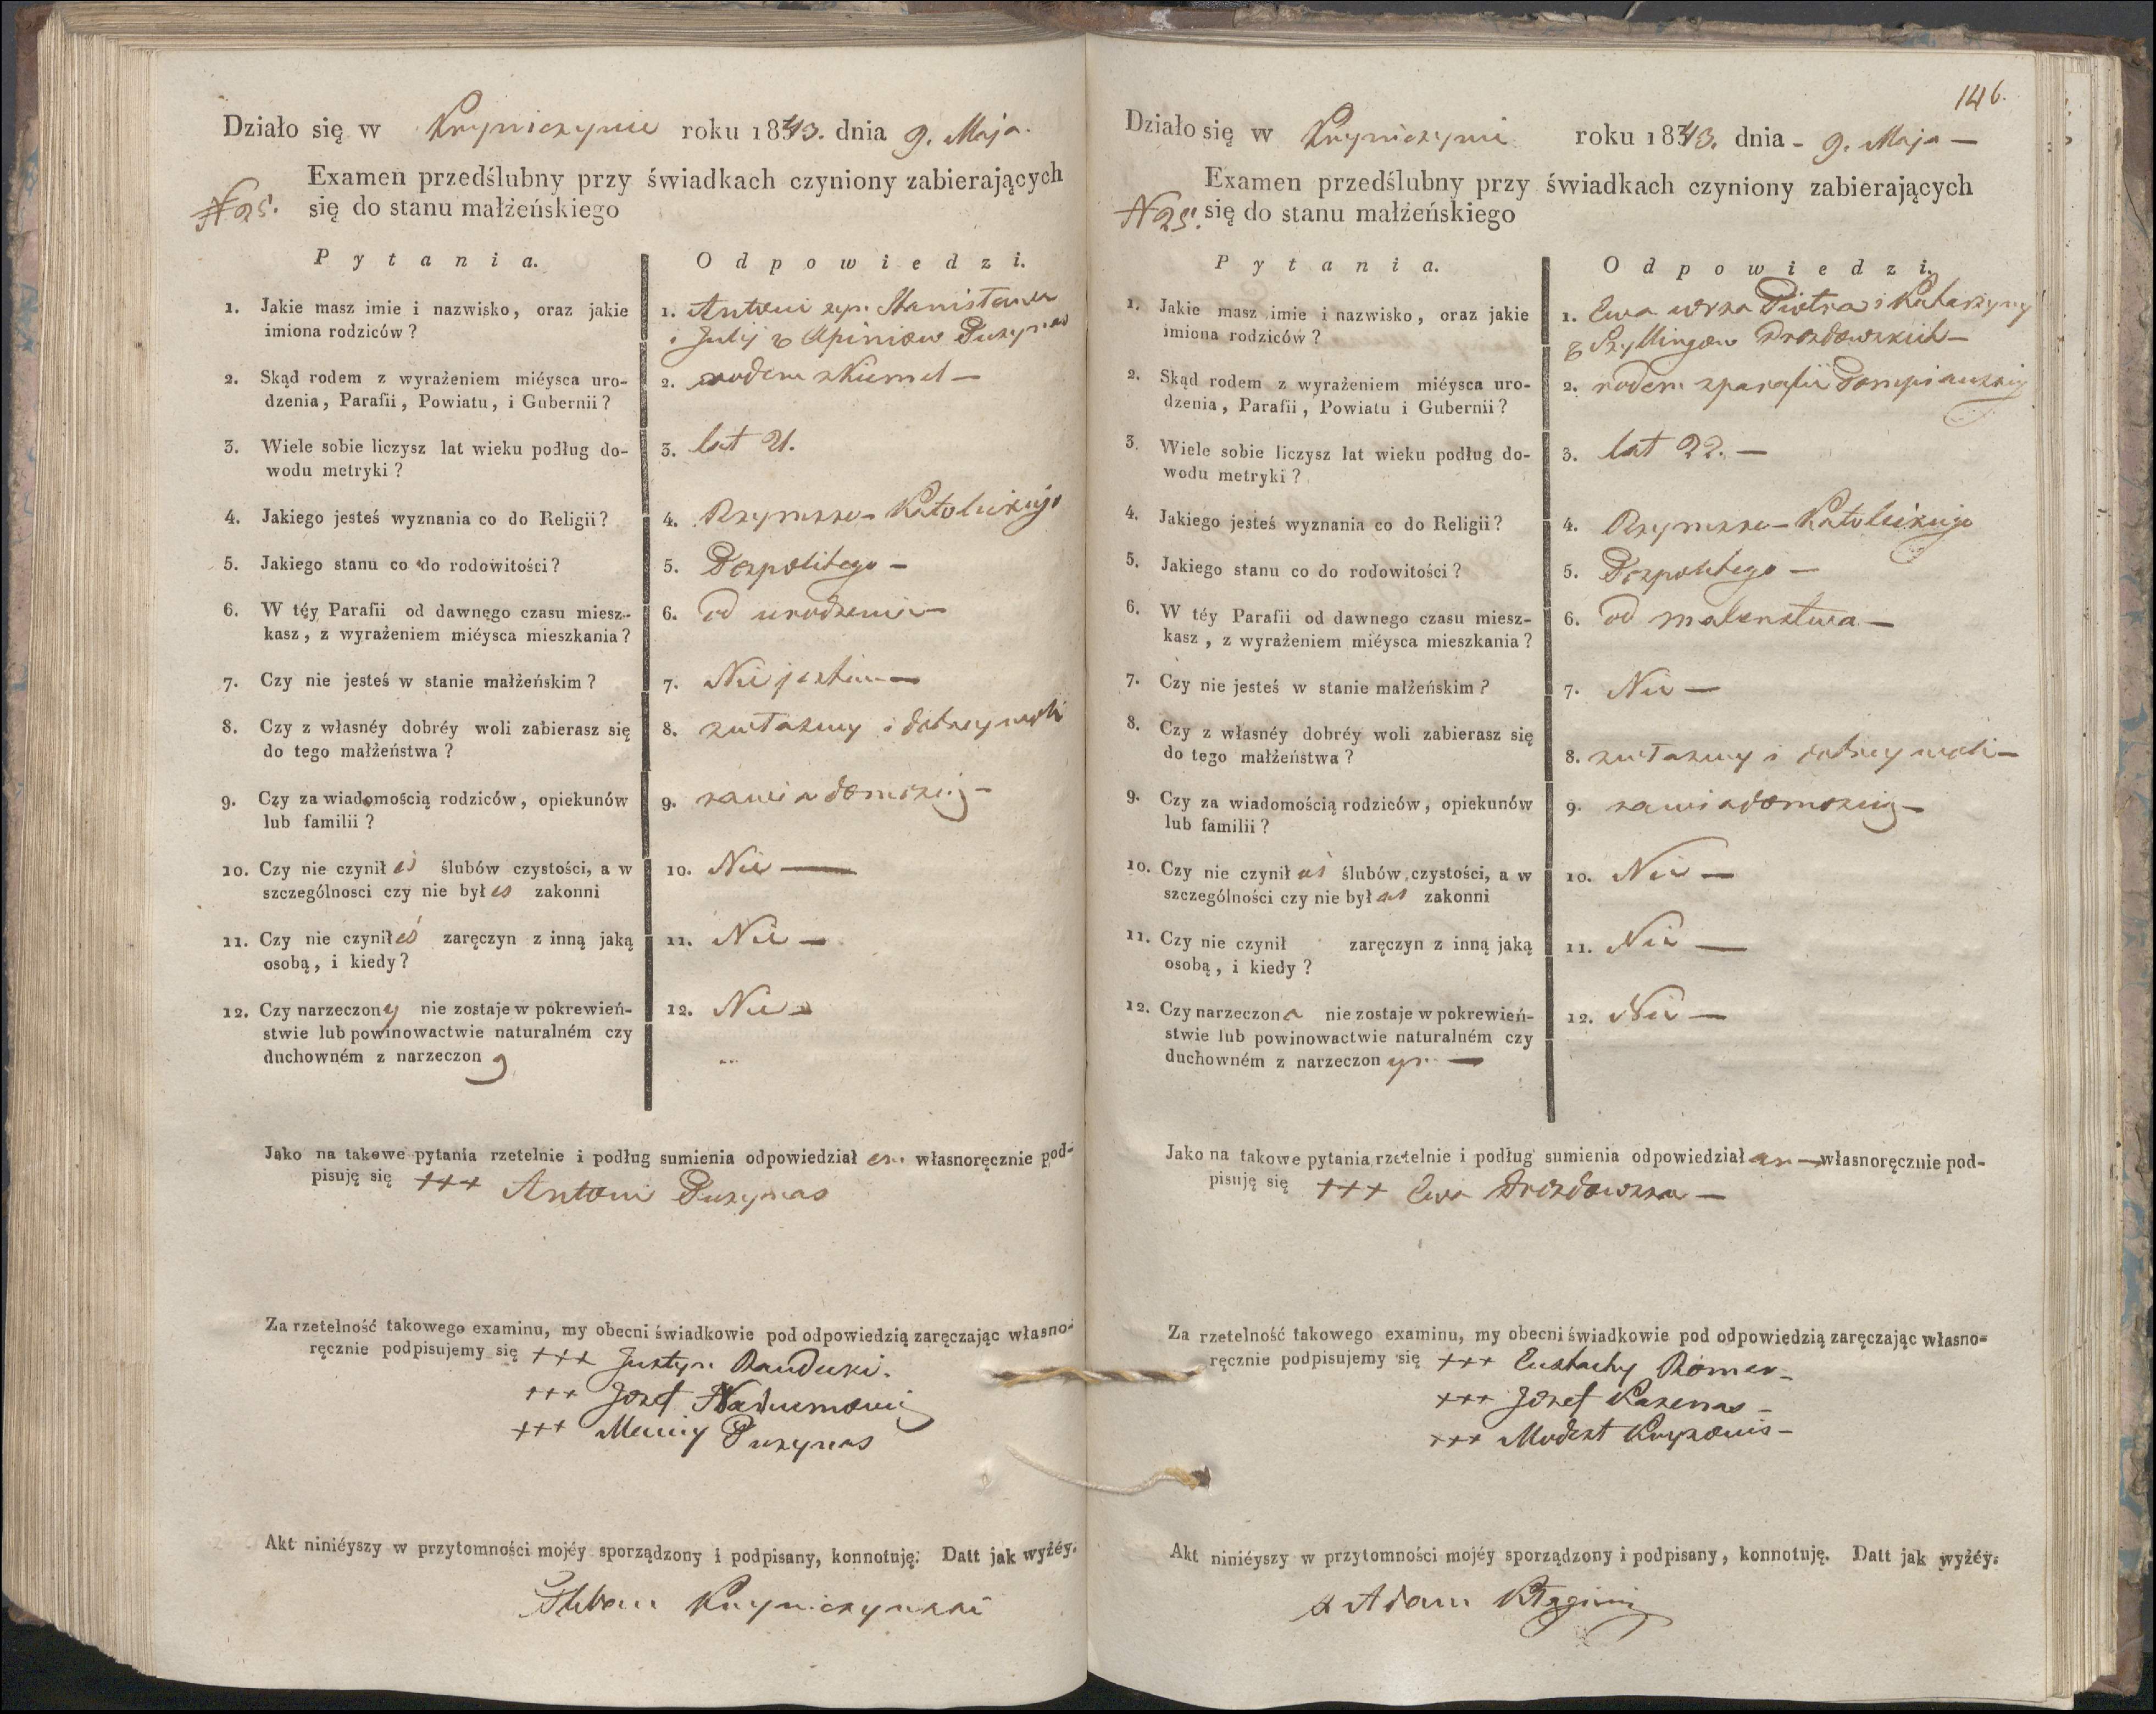 Działo się w Kryniczynie roku 1843. dnia 9. Maja.
N 25.
Examen przedślubny przy świadkach czyniony zabierających
się do stanu małżeńskiego
Pytania.
Odpowiedzi.
1. Jakie masz imie i nazwisko, oraz jakie
imiona rodziców?
1. Antoni syn Stanisława
i Julij z Puzynas
2. Skąd rodem z wyrażeniem miéysca uro-
dzenia, Parafii, Powiatu, i Gubernii?
2. rodem
3. Wiele sobie liczysz lat wieku podług do-
wodu metryki?
3. lat 21.
4. Jakiego jesteś wyznania co do Religii?
4. Rzymsko-Katolickiego
5. Jakiego stanu co do rodowitości?
5. Pospolitego —
6. W téy Parafii od dawnego czasu miesz-
kasz, z wyrażeniem miéysca mieszkania?
6. od urodzenia —
7. Czy nie jesteś w stanie małżeńskim?
7. Nie jestem —
8. Czy z własnéy dobréy woli zabierasz się
do tego małżeństwa?
8. zwłasney i dobrey woli
9. Czy za wiadomością rodziców, opiekunów
lub familii?
9. zawiadomością —
10. Czy nie czynił eś ślubów czystości, a w
szczególnosci czy nie był eś zakonni
10. Nie —
11. Czy nie czynił eś zaręczyn z inną jaką
osobą, i kiedy?
11. Nie —
12. Czy narzeczony nie zostaje w pokrewień-
stwie lub powinowactwie naturalném czy
duchowném z narzeczon ą
12. Nie —
Jako na takowe pytania rzetelnie i podług sumienia odpowiedział em. własnoręcznie pod-
pisuję się +++ Antoni Puzynas
Za rzetelność takowego examinu, my obecni świadkowie pod odpowiedzią zaręczając własno-
ręcznie podpisujemy się +++ Justyn
+++ Jozef
+++ Puzynas
Akt niniéyszy w przytomności mojéy sporządzony i podpisany, konnotuję. Datt jak wyżéy.
Kryniczynski
146.
Działo się w Kryniczynie roku 1843. dnia - 9. Maja —
N 25.
Examen przedślubny przy świadkach czyniony zabierających
się do stanu małżeńskiego
Pytania.
Odpowiedzi.
1. Jakie masz imie i nazwisko, oraz jakie
imiona rodziców?
1. Ewa Piotra i Katarzyny
z Szyllingow Drozdowskich —
2. Skąd rodem z wyrażeniem miéysca uro-
dzenia, Parafii, Powiatu i Gubernii?
2. rodem zparafii
3. Wiele sobie liczysz lat wieku podług do-
wodu metryki?
3. lat 22. —
4. Jakiego jesteś wyznania co do Religii?
4. Rzymsko-Katolickiego
5. Jakiego stanu co do rodowitości?
5. Pospolitego —
6. W téy Parafii od dawnego czasu miesz-
kasz, z wyrażeniem miéysca mieszkania?
6. od malenstwa —
7. Czy nie jesteś w stanie małżeńskim?
7. Nie —
8. Czy z własnéy dobréy woli zabierasz się
do tego małżeństwa?
8. zwłasney i dobrey woli —
9. Czy za wiadomością rodziców, opiekunów
lub familii?
9. zawiadomością —
10. Czy nie czynił aś ślubów czystości, a w
szczególności czy nie był aś zakonni
10. Nie —
11. Czy nie czynił zaręczyn z inną jaką
osobą, i kiedy?
11. Nie —
12. Czy narzeczona nie zostaje w pokrewień-
stwie lub powinowactwie naturalném czy
duchowném z narzeczon ym —
12. Nie —
Jako na takowe pytania rzetelnie i podług sumienia odpowiedział am — własnoręcznie pod-
pisuję się +++ Ewa Drozdowska —
Za rzetelność takowego examinu, my obecni świadkowie pod odpowiedzią zaręczając własno-
ręcznie podpisujemy się +++ Eustachy Romer —
+++ Jozef
+++ Modest
Akt niniéyszy w przytomności mojéy sporządzony i podpisany, konnotuję. Datt jak wyżéy.
Adam